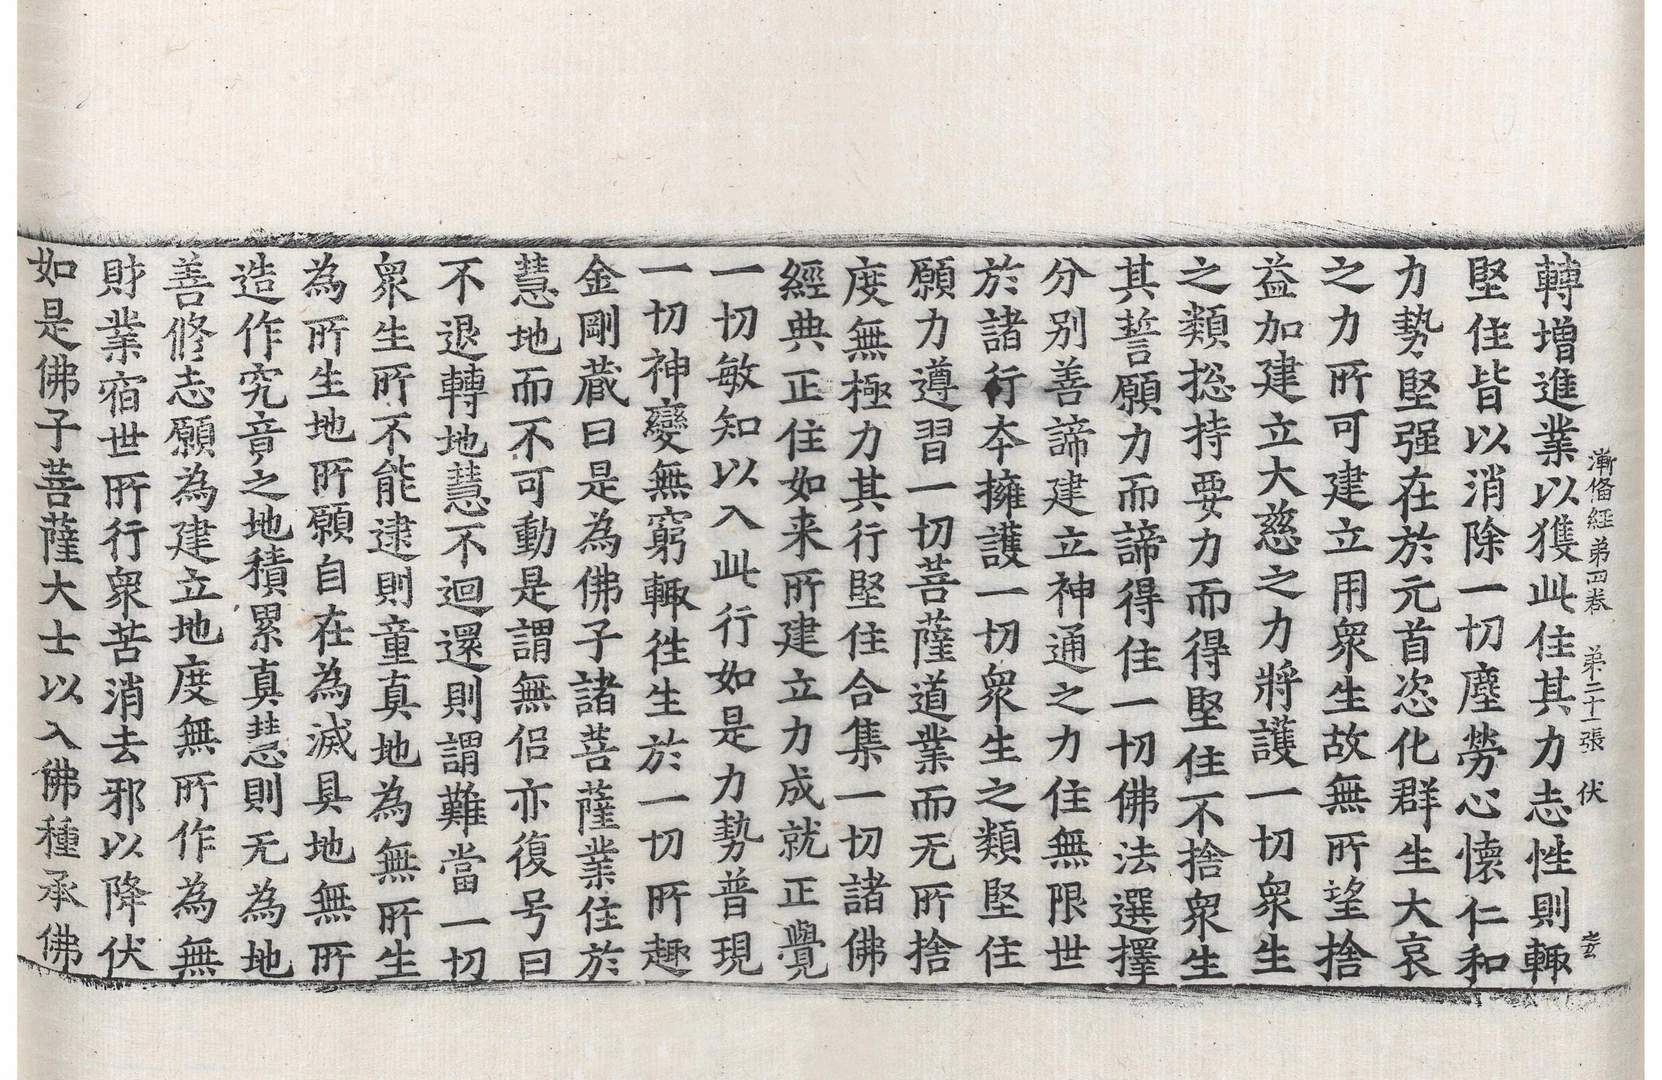 漸俻經第四卷　第二十一張　伏
轉增進業以獲此住其力志性則輙
堅住皆以消除一切塵勞心懷仁和
力勢堅强在於元首恣化群生大哀
之力所可建立用衆生故無所望捨
益加建立大慈之力將護一切衆生
之類捴持要力而得堅住不捨衆生
其誓願力而諦得住一切佛法選擇
分别善諦建立神通之力住無限世
於諸行夲擁護一切衆生之類堅住
願力遵習一切菩薩道業而无所捨
度無極力其行堅住合集一切諸佛
經典正住如来所建立力成就正覺
一切敏知以入此行如是力勢普現
一切神變無窮輙徃生於一切所趣
金剛藏曰是為佛子諸菩薩業住於
慧地而不可動是謂無侣亦復号曰
不退轉地慧不迴還則謂難當一切
衆生所不能逮則童真地為無所生
為所生地所願自在為滅具地無所
造作究竟之地積累真慧則无為地
善修志願為建立地度無所作為無
財業宿世所行衆苦消去邪以降伏
如是佛子菩薩大士以入佛種承佛